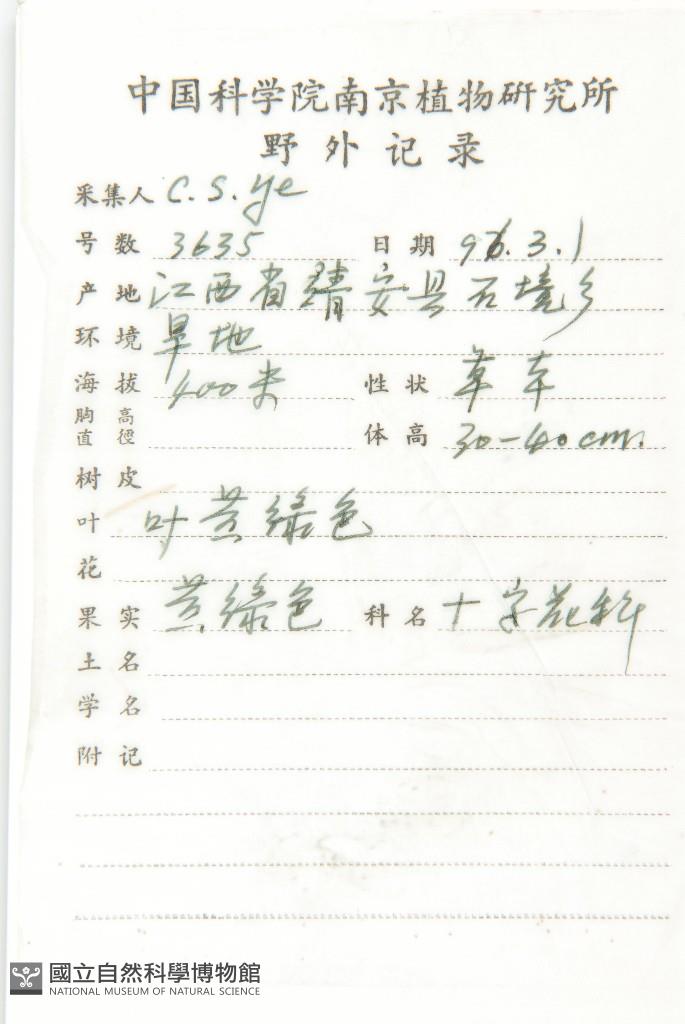 中国科学院南京植物研究所
野外记录
采集人 C.S.Ye
号数 3635 日期 96.3.1
产地 江西省靖安县石境乡
环境 旱地
海拔 400米 性状 草本
胸高直径 体高 30-40cm.
树皮
叶 叶黄绿色
花
果实 黄绿色 科名 十字花科
土名
学名
附记
國立自然科學博物館
NATIONAL MUSEUM OF NATURAL SCIENCE